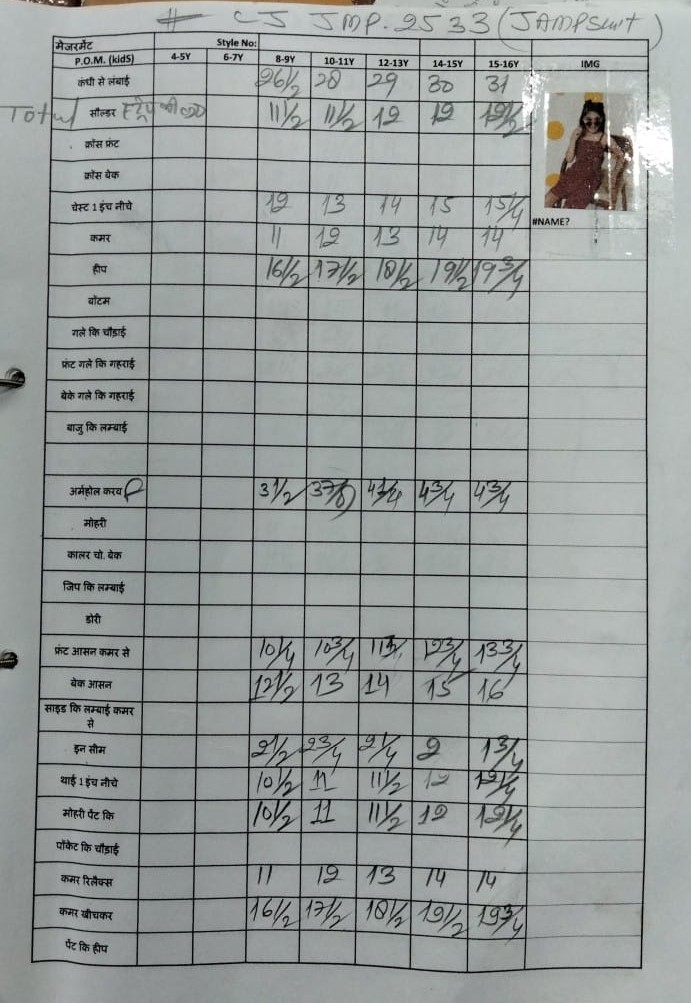 # CJ JMP. 2533 (JAMPSuit)
मेजरमेंट Style No:
P.O.M. (kidS) 4-5Y 6-7Y 8-9Y 10-11Y 12-13Y 14-15Y 15-16Y IMG
कंधी से लंबाई 26 1/2 28 29 30 31
Total सौल्डर 11 1/2 11 1/2 12 12 12 1/2
क्रॉस फ्रंट
क्रॉस बेक
चेस्ट 1 इंच नीचे 12 13 14 15 15 1/4
#NAME?
कमर 11 12 13 14 14
हीप 16 1/2 17 1/2 18 1/2 19 1/2 19 3/4
बॉटम
गले कि चौड़ाई
फ्रंट गले कि गहराई
बेके गले कि गहराई
बाजु कि लम्बाई
अर्महोल करव 3 1/2 3 7/8 4 1/4 4 3/4 4 3/4
मोहरी
कालर चो. बेक
जिप कि लम्बाई
डोरी
फ्रंट आसन कमर से 10 1/4 10 3/4 12 3/4 13 3/4
बेक आसन 12 1/2 13 14 15 16
साइड कि लम्बाई कमर
से
इन सीम 2 1/2 2 3/4 2 1/4 2 1 3/4
थाई 1 इंच नीचे 10 1/2 11 11 1/2 12 12 1/4
मोहरी पेंट कि 10 1/2 11 11 1/2 12 12 1/4
पॉकेट कि चौड़ाई
कमर रिलैक्स 11 12 13 14 14
कमर खीचकर 16 1/2 17 1/2 18 1/2 19 1/2 19 3/4
पेंट कि हीप